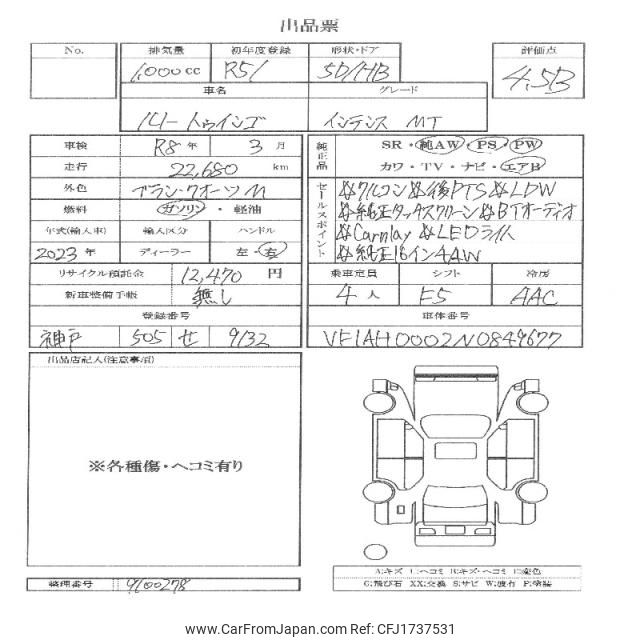 出品票
No. 排気量 初年度登録 形状・ドア 評価点
1,000cc R5/ 5D/HB 4.5B
車名 グレード
ルノー トゥインゴ インテンス MT
車検 R8年 3月 純正品 SR・純AW・PS・PW
走行 22,680 km カワ・TV・ナビ・エアB
外色 ブランクオーツM セールスポイント ☆クルコン☆後PTS☆LDW
燃料 ガソリン・軽油 ☆純正タッチスクリーン☆BTオーディオ
年式(輸入車) 輸入区分 ハンドル ☆Carplay ☆LEDライト
2023年 ディーラー 左・右 ☆純正16インチAW
リサイクル預託金 12,470円 乗車定員 シフト 冷房
新車整備手帳 無し 4人 F5 AAC
登録番号 車体番号
神戸 505 せ 9132 VF1AH0002N0849677
出品店記入(注意事項)
※各種傷・ヘコミ有り
A:キズ U:ヘコミ B:キズ・ヘコミ C:変色
G:飛び石 XX:交換 S:サビ W:波有 P:塗装
整理番号 9100278
www.CarFromJapan.com | Ref. No: CFJ1737531